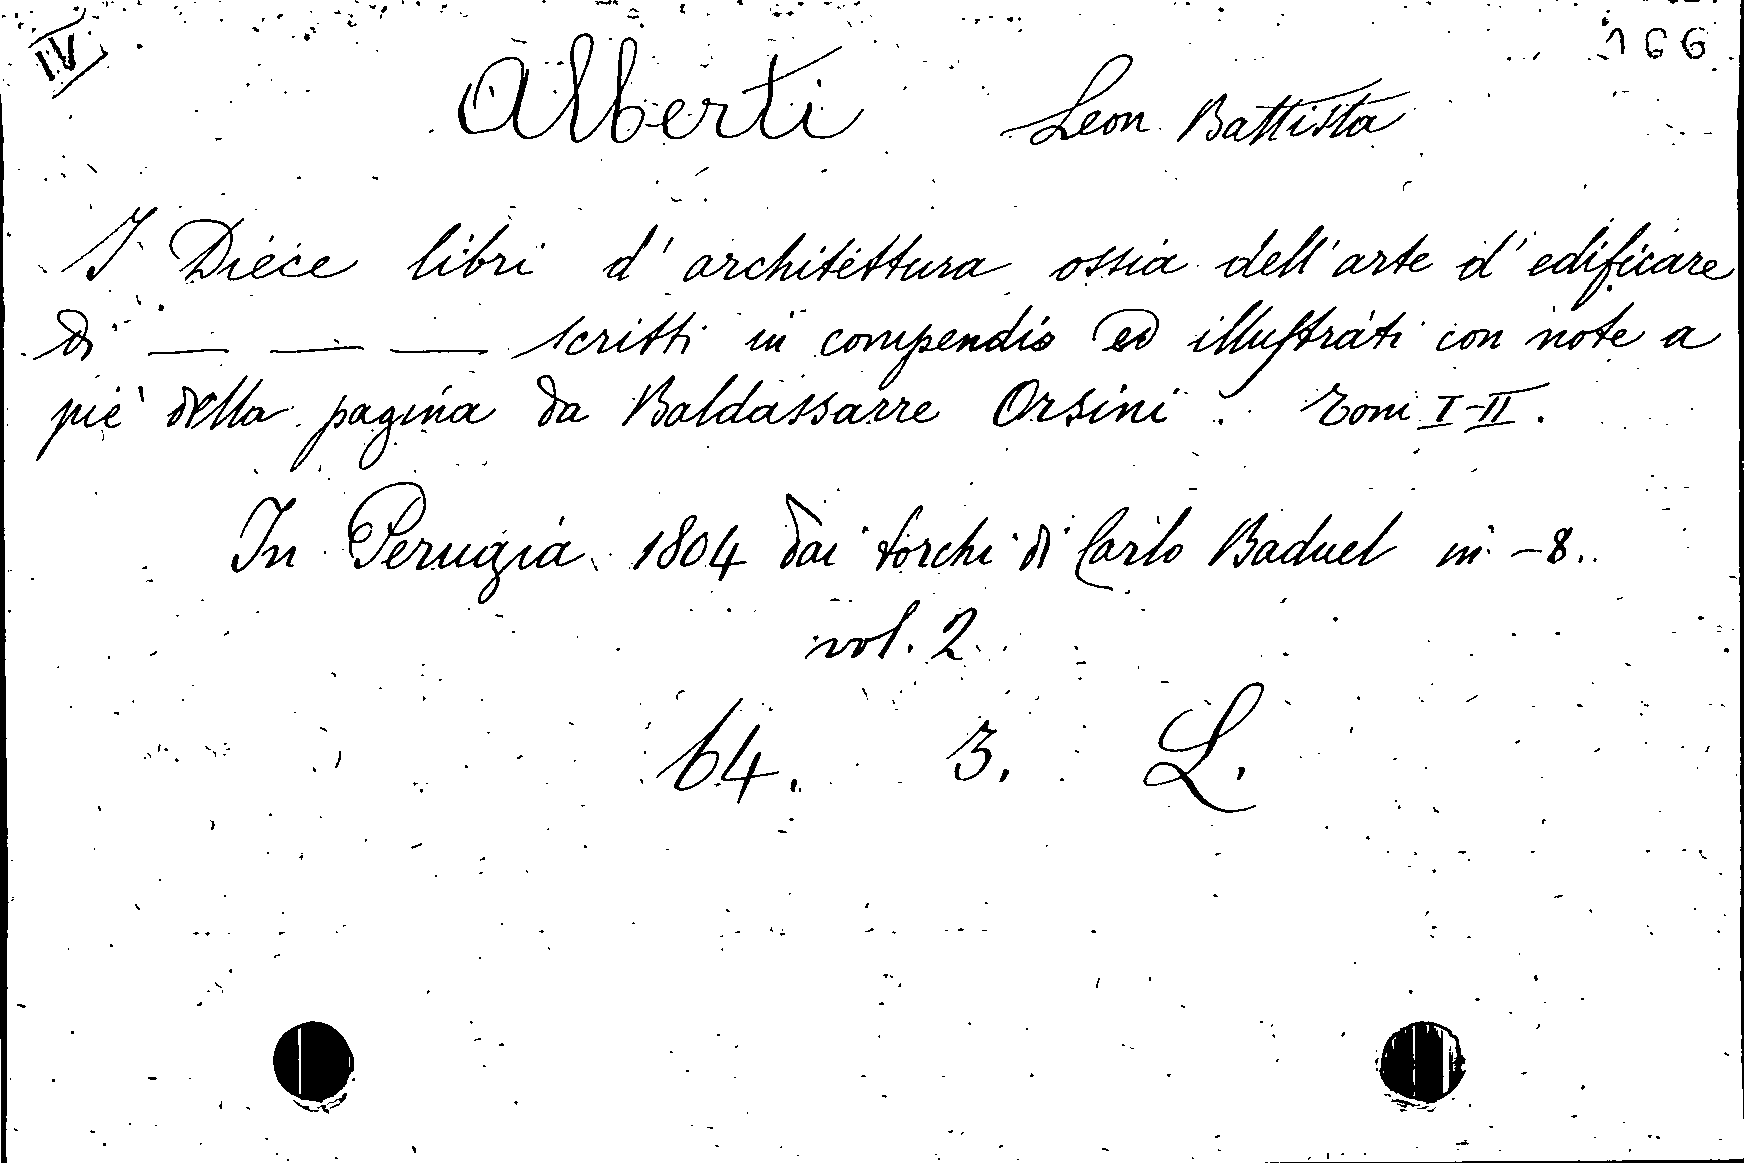 IV 166
Alberti Leon Battista
I Diece libri d'architettura ossia dell'arte d'edificare
di — — — scritti in compendio ed illustrati con note a
piè della pagina da Baldassarre Orsini. Tomi I-II.
In Perugia 1804 dai torchi di Carlo Baduel in -8.
vol. 2
64. 3. L.